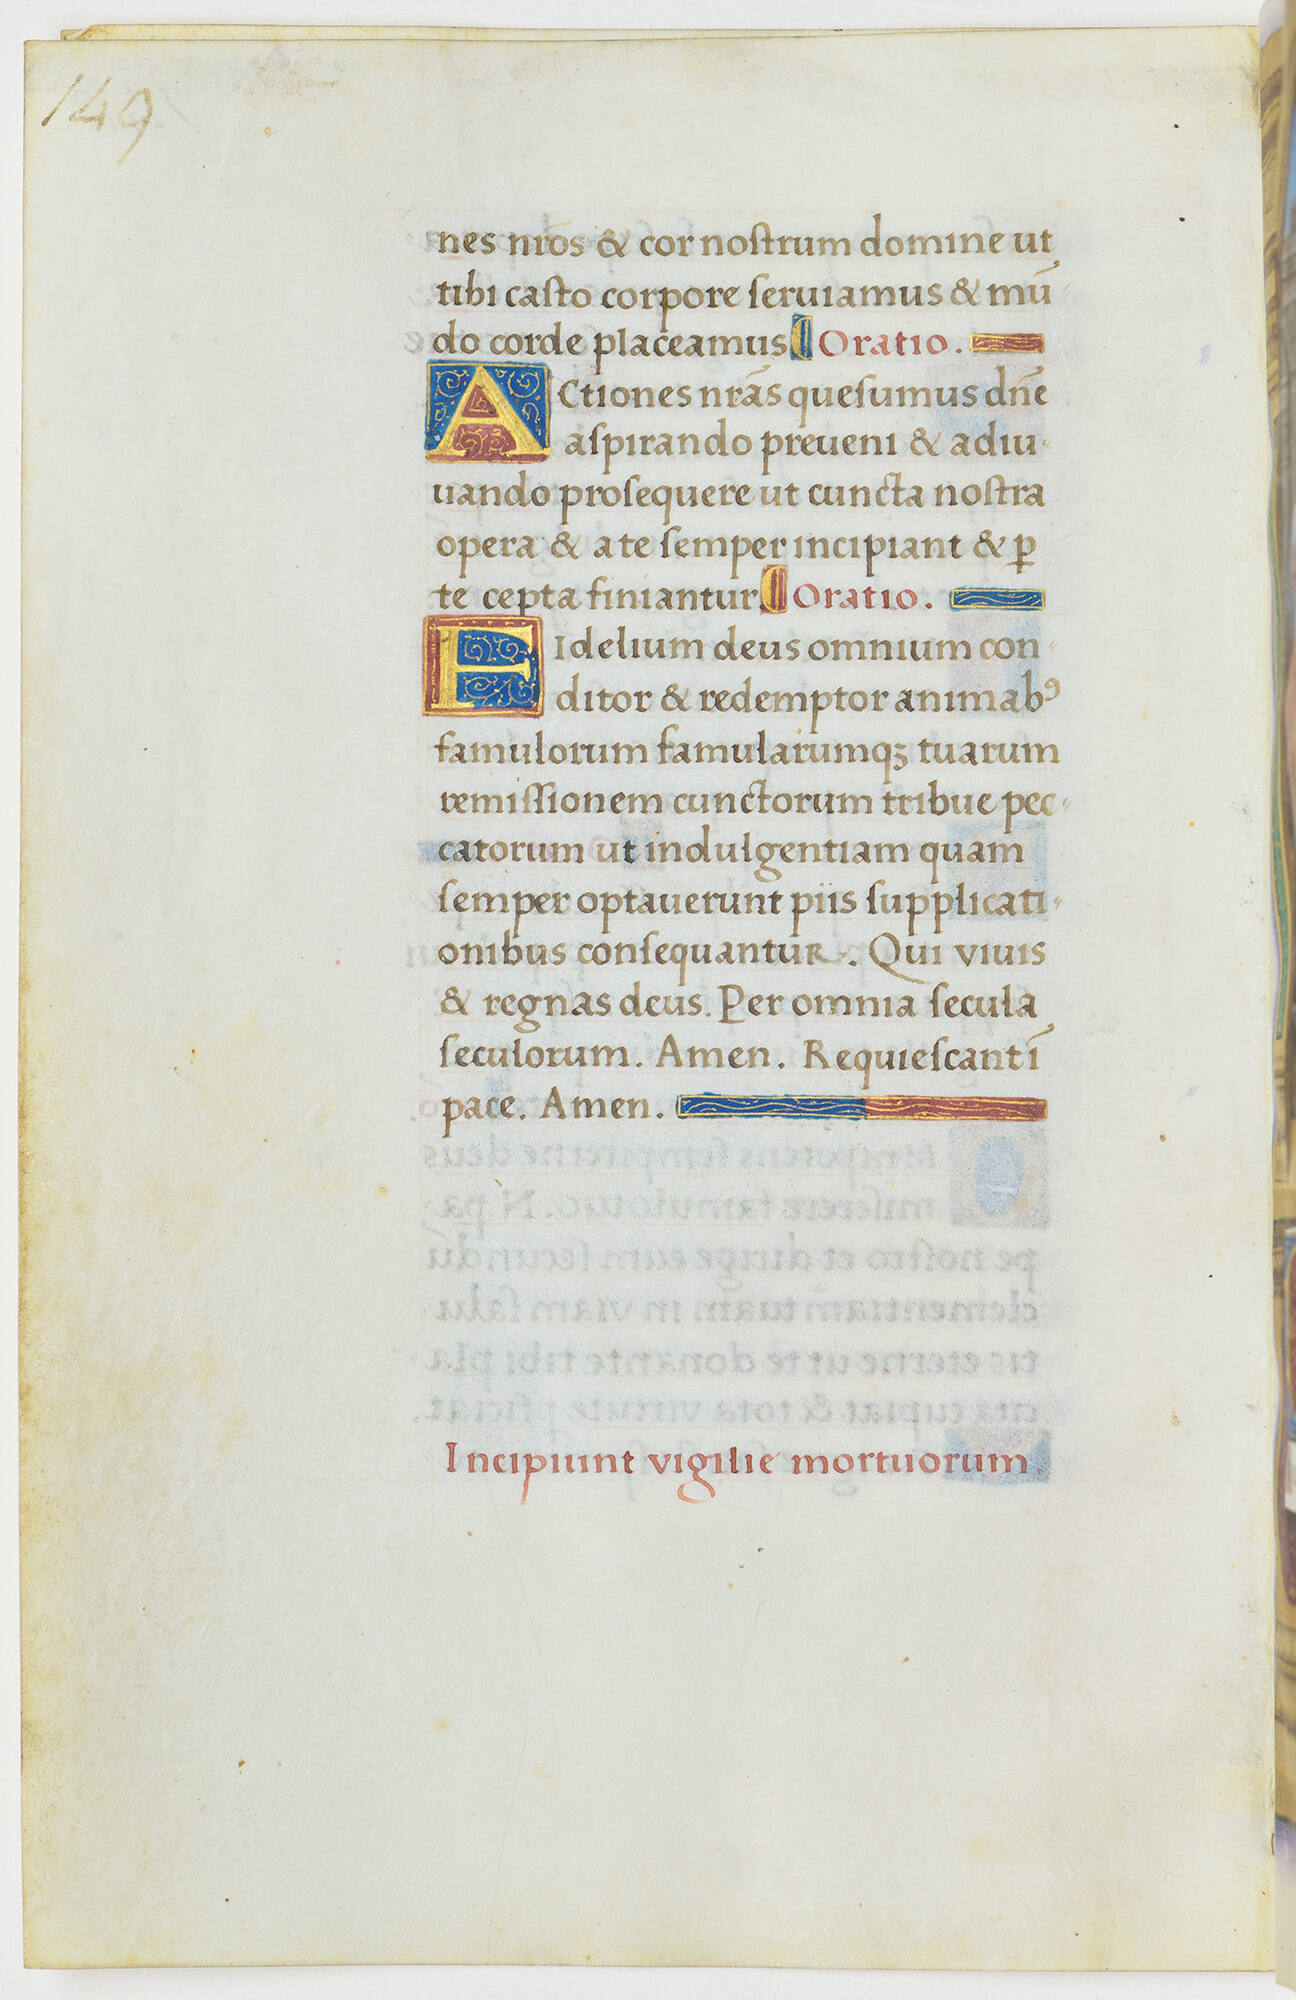 149
nes nr̃os & cor nostrum domine ut
tibi casto corpore seruiamus & mū
do corde placeamus Oratio.
ACtiones nr̃as quesumus dn̄e
aspirando preueni & adiu-
uando prosequere ut cuncta nostra
opera & a te semper incipiant & ꝑ
te cepta finiantur Oratio.
FIdelium deus omnium con-
ditor & redemptor animabꝰ
famulorum famularumqꝫ tuarum
remissionem cunctorum tribue pec-
catorum ut indulgentiam quam
semper optauerunt piis supplicati-
onibus consequantur. Qui viuis
& regnas deus. Per omnia secula
seculorum. Amen. Requiescant ī
pace. Amen.
Incipiunt vigilie mortuorum.